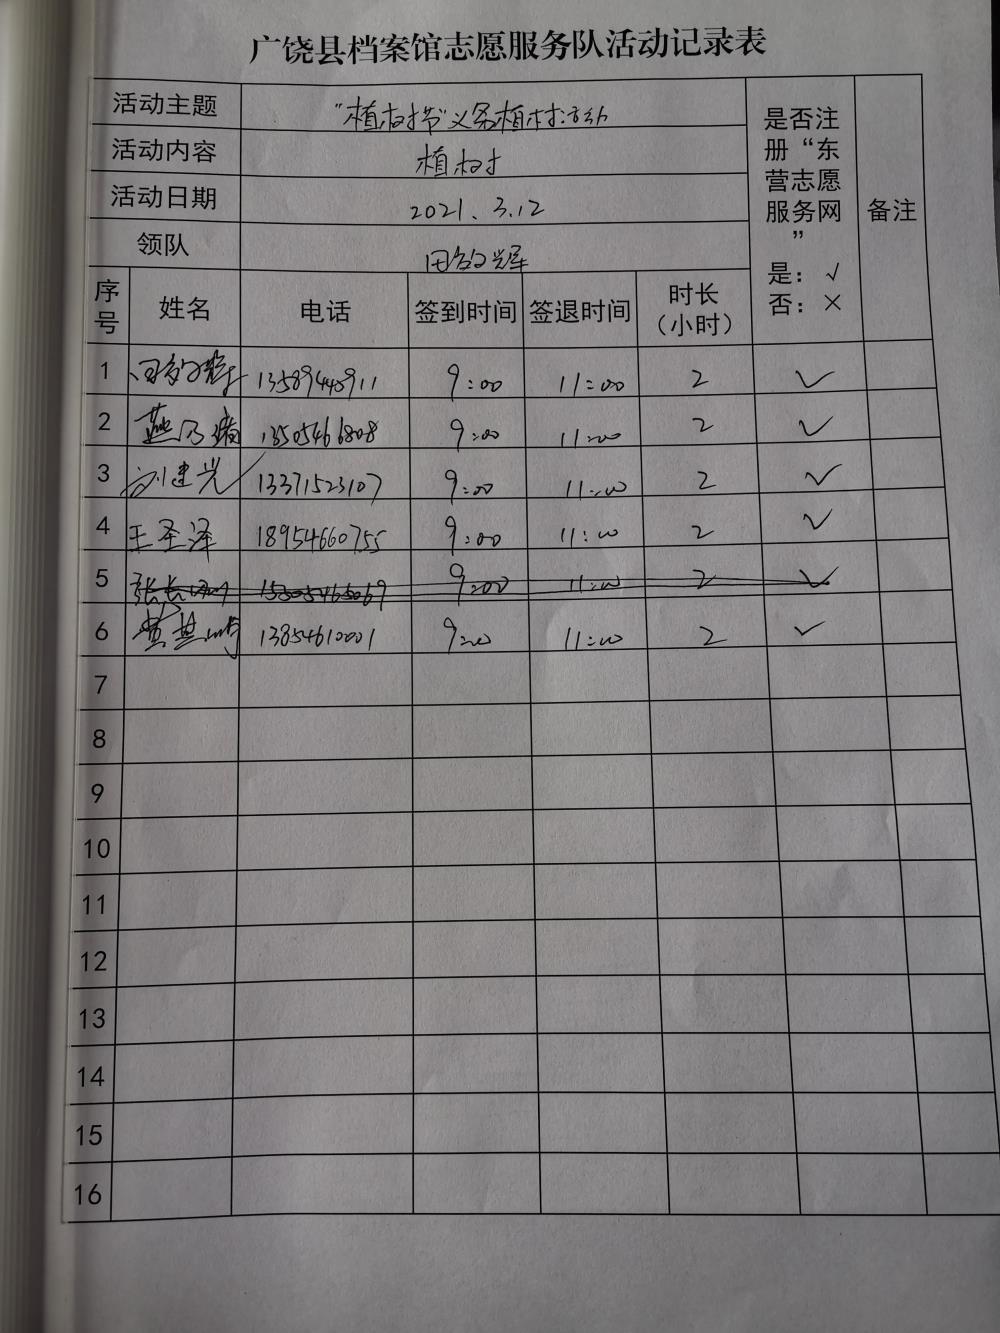 广饶县档案馆志愿服务队活动记录表
活动主题 “植树节”义务植树活动
活动内容 植树
活动日期 2021、3.12
领队
是否注
册“东
营志愿
服务网
”
是：√
否：×
备注
序号 姓名 电话 签到时间 签退时间 时长（小时）
1 13589440911 9:00 11:00 2 ✓
2 13505466808 9:00 11:00 2 ✓
3 刘建光 13371523107 9:00 11:00 2 ✓
4 王圣泽 18954660755 9:00 11:00 2 ✓
5 9:00 11:00 2 ✓
6 13854610001 9:00 11:00 2 ✓
7
8
9
10
11
12
13
14
15
16